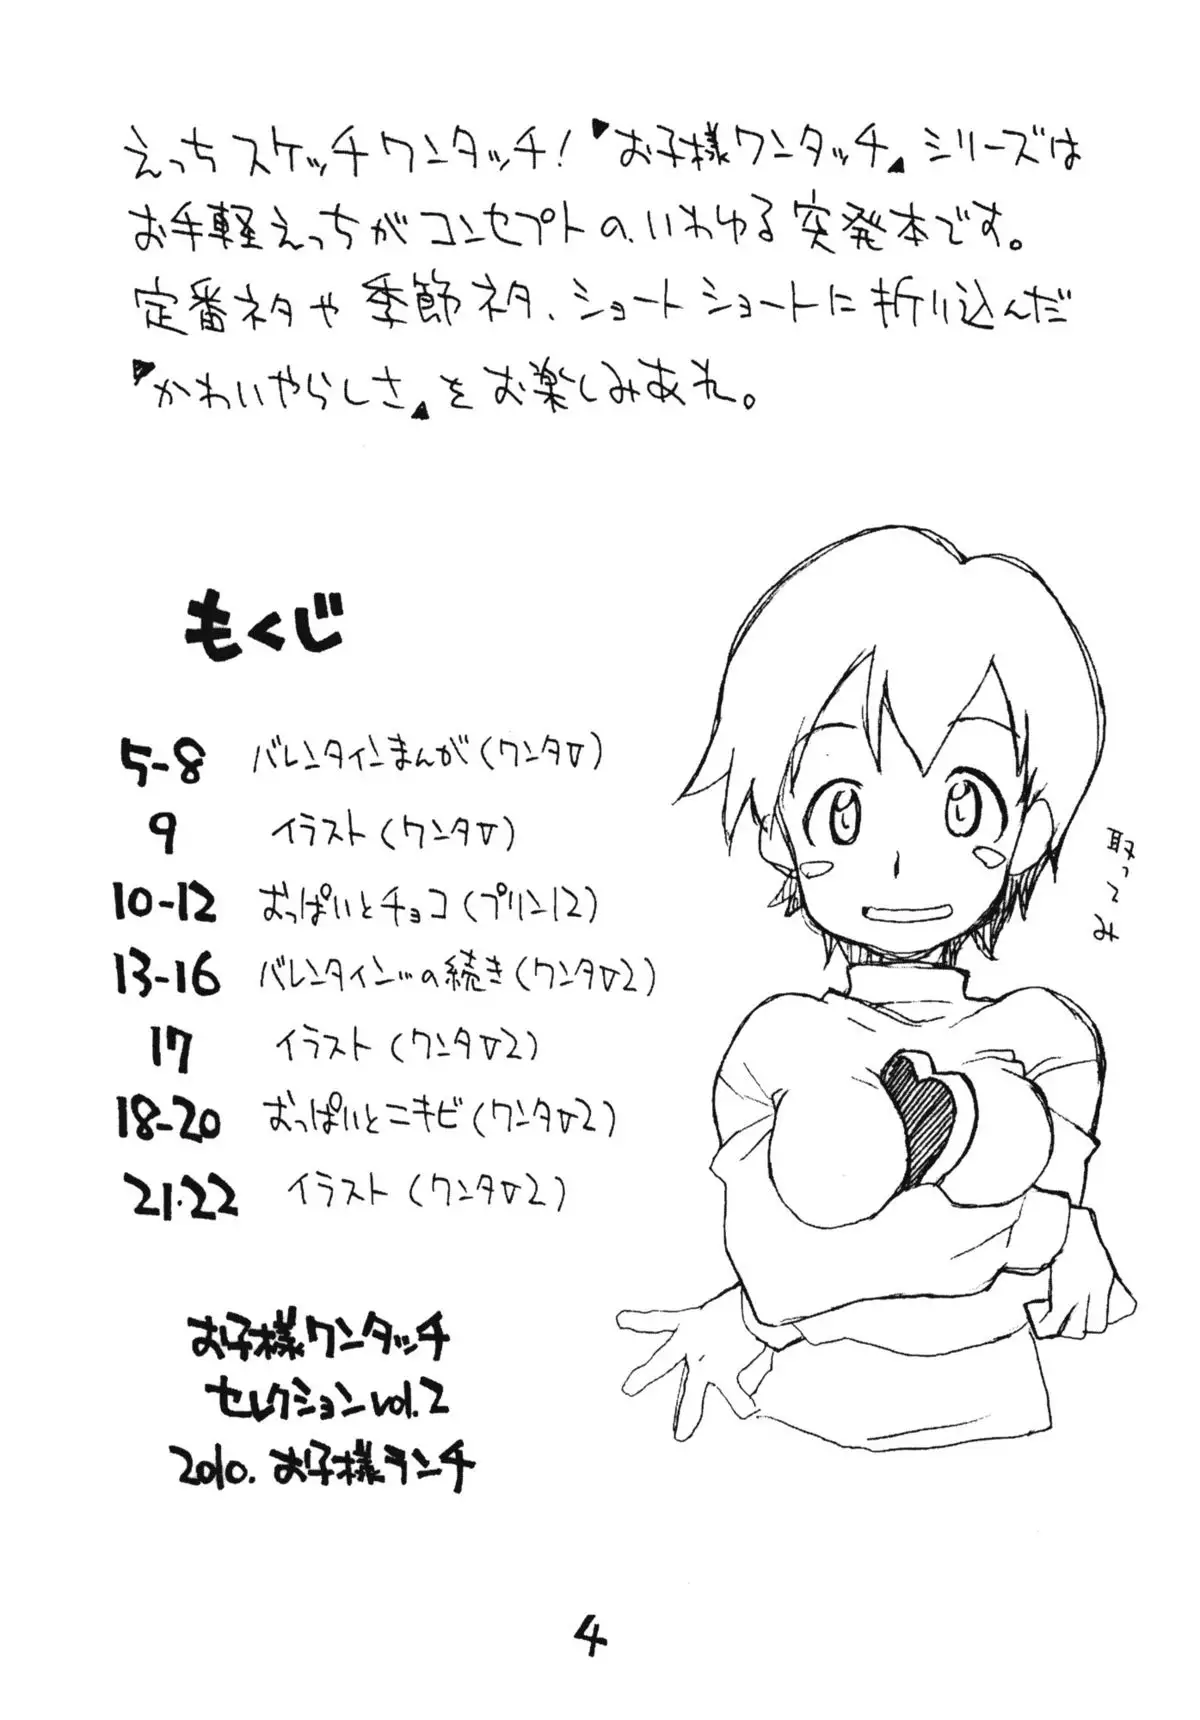 えっちスケッチワンタッチ!『お子様ワンタッチ』シリーズは
お手軽えっちがコンセプトの、いわゆる突発本です。
定番ネタや季節ネタ、ショートショートに折り込んだ
『かわいやらしさ』をお楽しみあれ。
もくじ
5-8 バレンタインまんが(ワンタ▽)
9 イラスト(ワンタ▽)
10-12 おっぱいとチョコ(プリン12)
13-16 バレンタイン…の続き(ワンタ▽2)
17 イラスト(ワンタ▽2)
18-20 おっぱいとニキビ(ワンタ▽2)
21・22 イラスト(ワンタ▽2)
取ってみ
お子様ワンタッチ
セレクションvol.2
2010. お子様ランチ
4